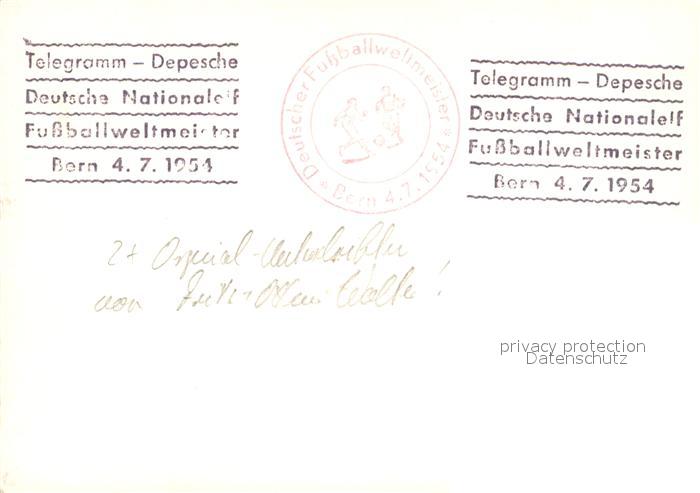 Telegramm – Depesche
Deutsche Nationalelf
Fußballweltmeister
Bern 4. 7. 1954
Deutscher Fußballweltmeister
* Bern 4.7.1954 *
Telegramm – Depesche
Deutsche Nationalelf
Fußballweltmeister
Bern 4. 7. 1954
2x Original-Unterschriften
von Fritz + Ottmar Walter !
privacy protection
Datenschutz